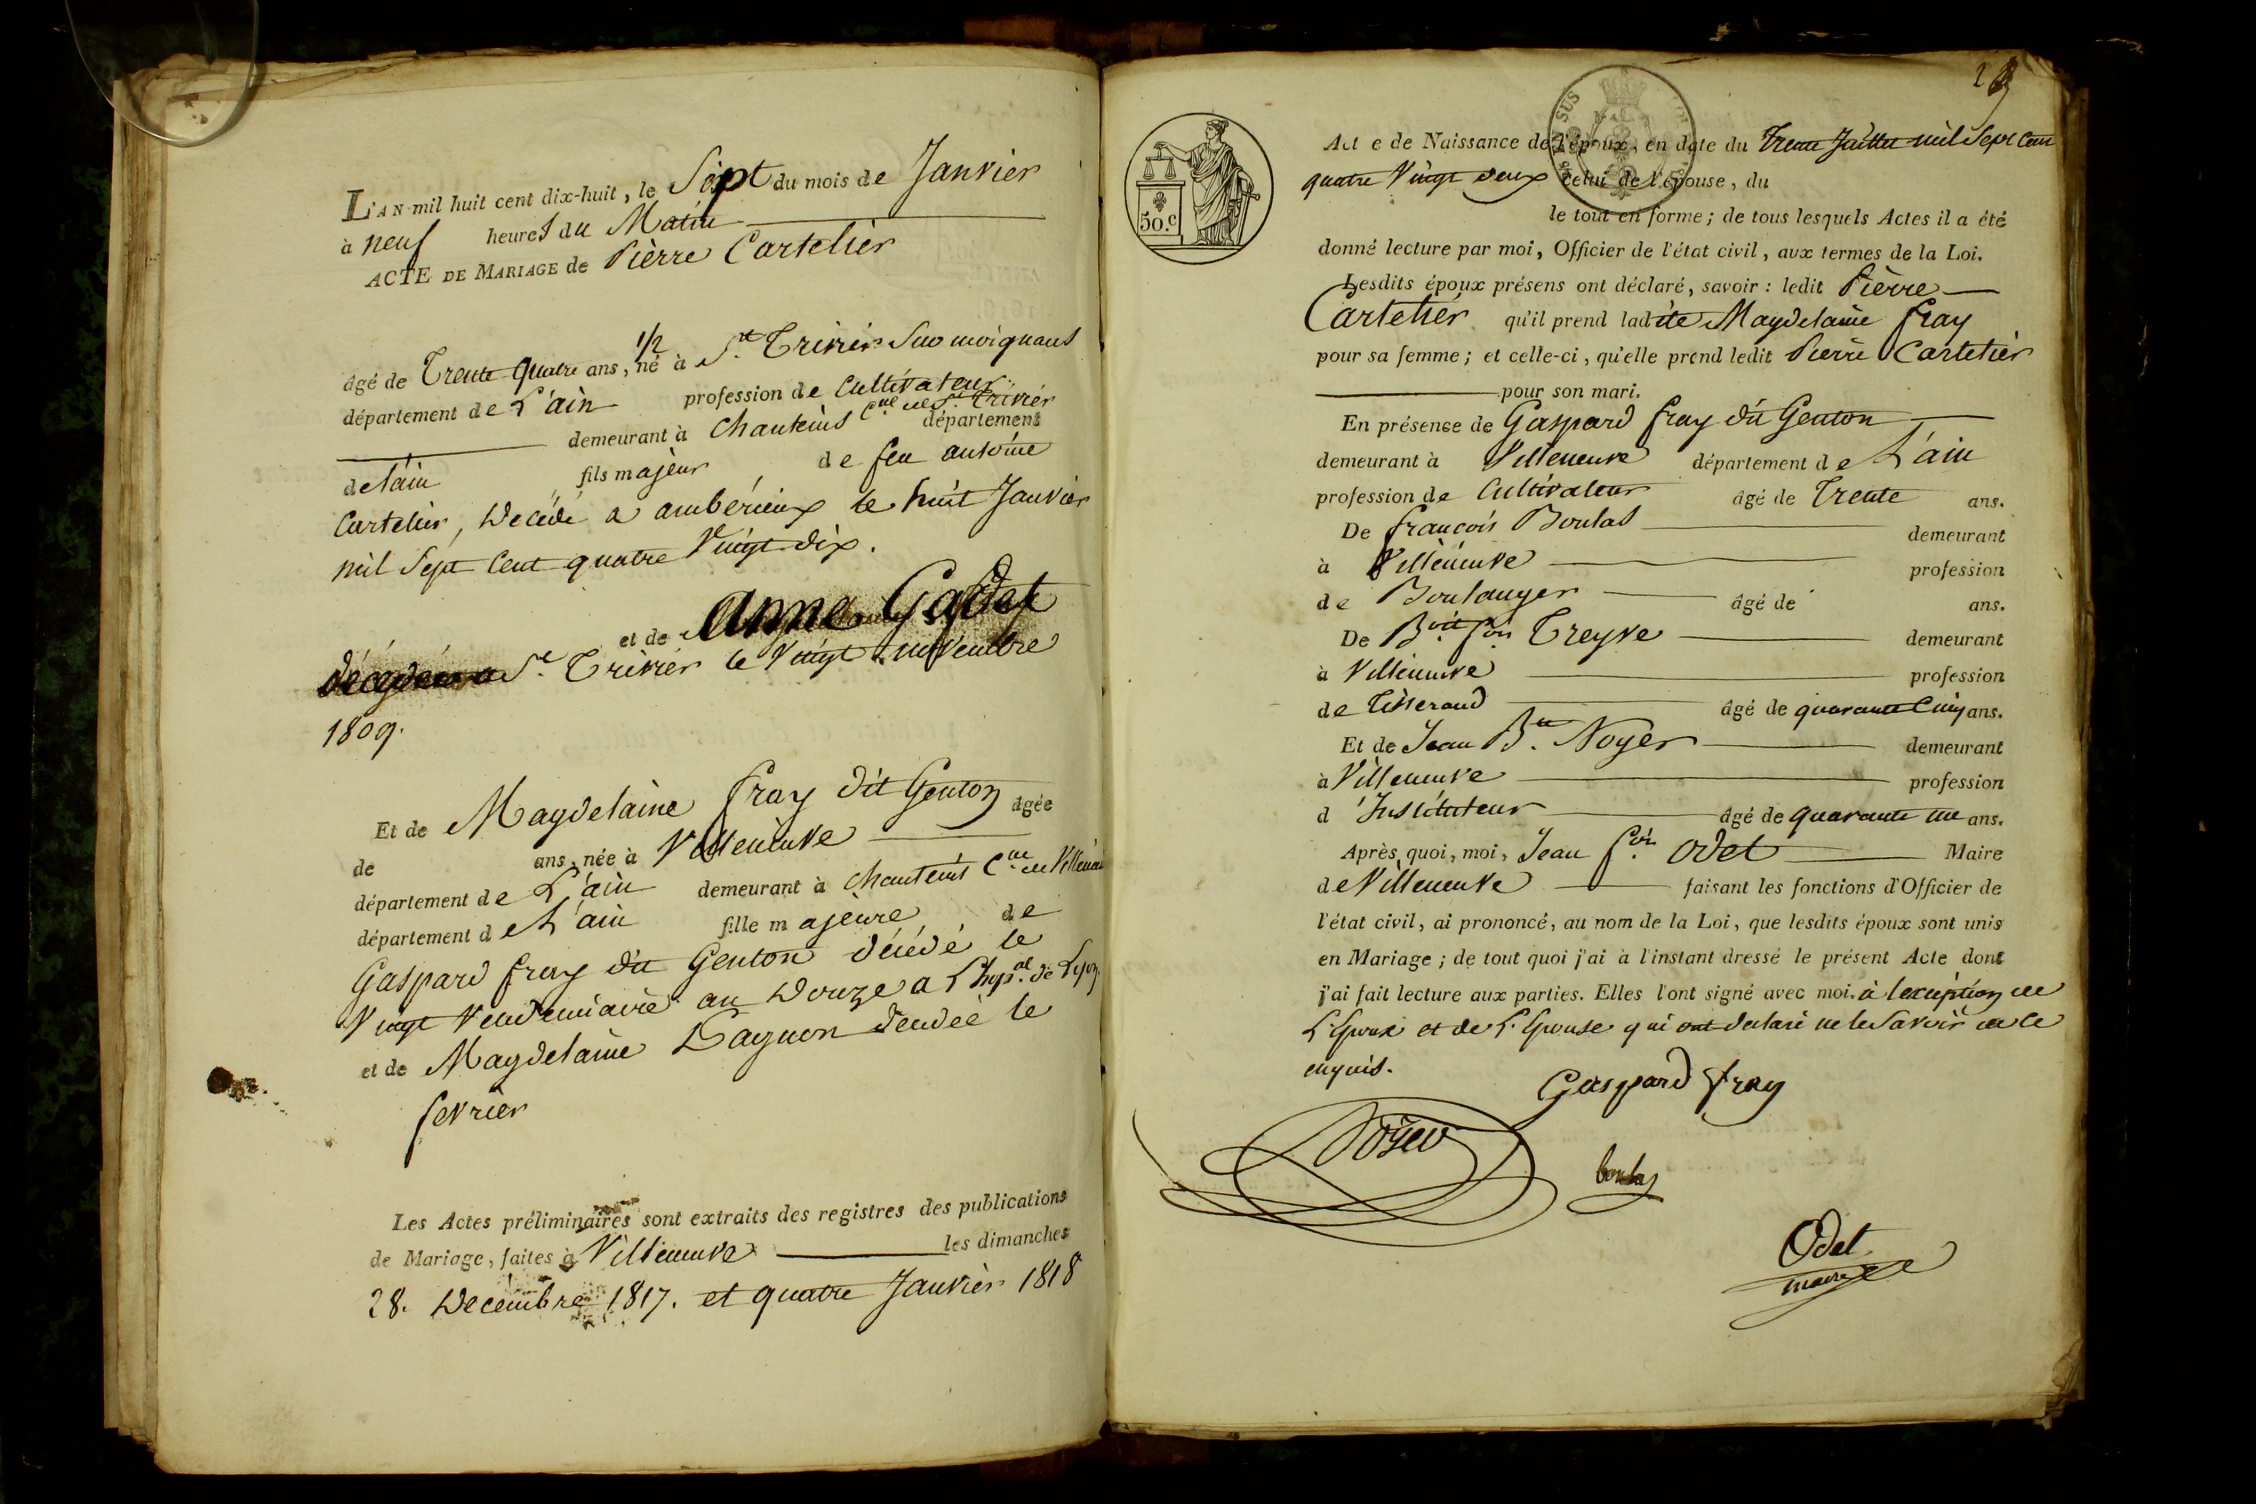 L'AN mil huit cent dix-huit, le Sept du mois de Janvier
à neuf heures du Matin
ACTE DE MARIAGE de Pièrre Cartelier
âgé de Trente quatre ans, 1/2 né à St. Trivier Sur moignans
département de L'ain profession de Cultivateur
demeurant à Chanteins Cne de St. Trivier département
de l'ain fils majeur de feu antoine
Cartelier, Décédé a ambérieux le huit Janvier
mil Sept Cent quatre Vingt dix.
et de Anne
décédée a St. Trivier le Vingt novembre
1809.
Et de Magdelaine fray dit Genton âgée
de ans, née à Villeneuve
département de L'ain demeurant à Chanteins Cne de
département de L'ain fille majeure de
Gaspard fray dit Genton décédé le
Vingt Vendemiaire an Douze a L'hopal. de Lyon
et de Magdelaine Dagnon le
fevrier
Les Actes préliminaires sont extraits des registres des publications
de Mariage, faites à Villeneuve les dimanches
28. Décembre 1817. et quatre Janvier 1818
50.c
SUS
Acte de Naissance de l'époux, en date du Trente Juillet mil Sept Cent
quatre Vingt deux celui de l'épouse, du
le tout en forme; de tous lesquels Actes il a été
donné lecture par moi, Officier de l'état civil, aux termes de la Loi.
Lesdits époux présens ont déclaré, savoir: ledit Pièrre
Cartelier qu'il prend ladite Magdelaine fray
pour sa femme; et celle-ci, qu'elle prend ledit Pierre Cartelier
pour son mari.
En présense de Gaspard fray dit Genton
demeurant à Villeneuve département de L'ain
profession de Cultivateur âgé de Trente ans.
De françois Boulas demeurant
à Villeneuve profession
de Boulanger âgé de ans.
De Boit fois Treyve demeurant
à Villeneuve profession
de Tisserand âgé de quarante Cinq ans.
Et de Jean Bte. Noyer demeurant
à Villeneuve profession
d'Instituteur âgé de quarante un ans.
Après quoi, moi, Jean fois. Odet Maire
de Villeneuve faisant les fonctions d'Officier de
l'état civil, ai prononcé, au nom de la Loi, que lesdits époux sont unis
en Mariage; de tout quoi j'ai à l'instant dressé le présent Acte dont
j'ai fait lecture aux parties. Elles l'ont signé avec moi. à lexception de
L'Epoux et de L'Epouse qui ont déclaré ne le Savoir de ce
enquis.
Gaspard fray
Noyer
boulas
Odet
maire